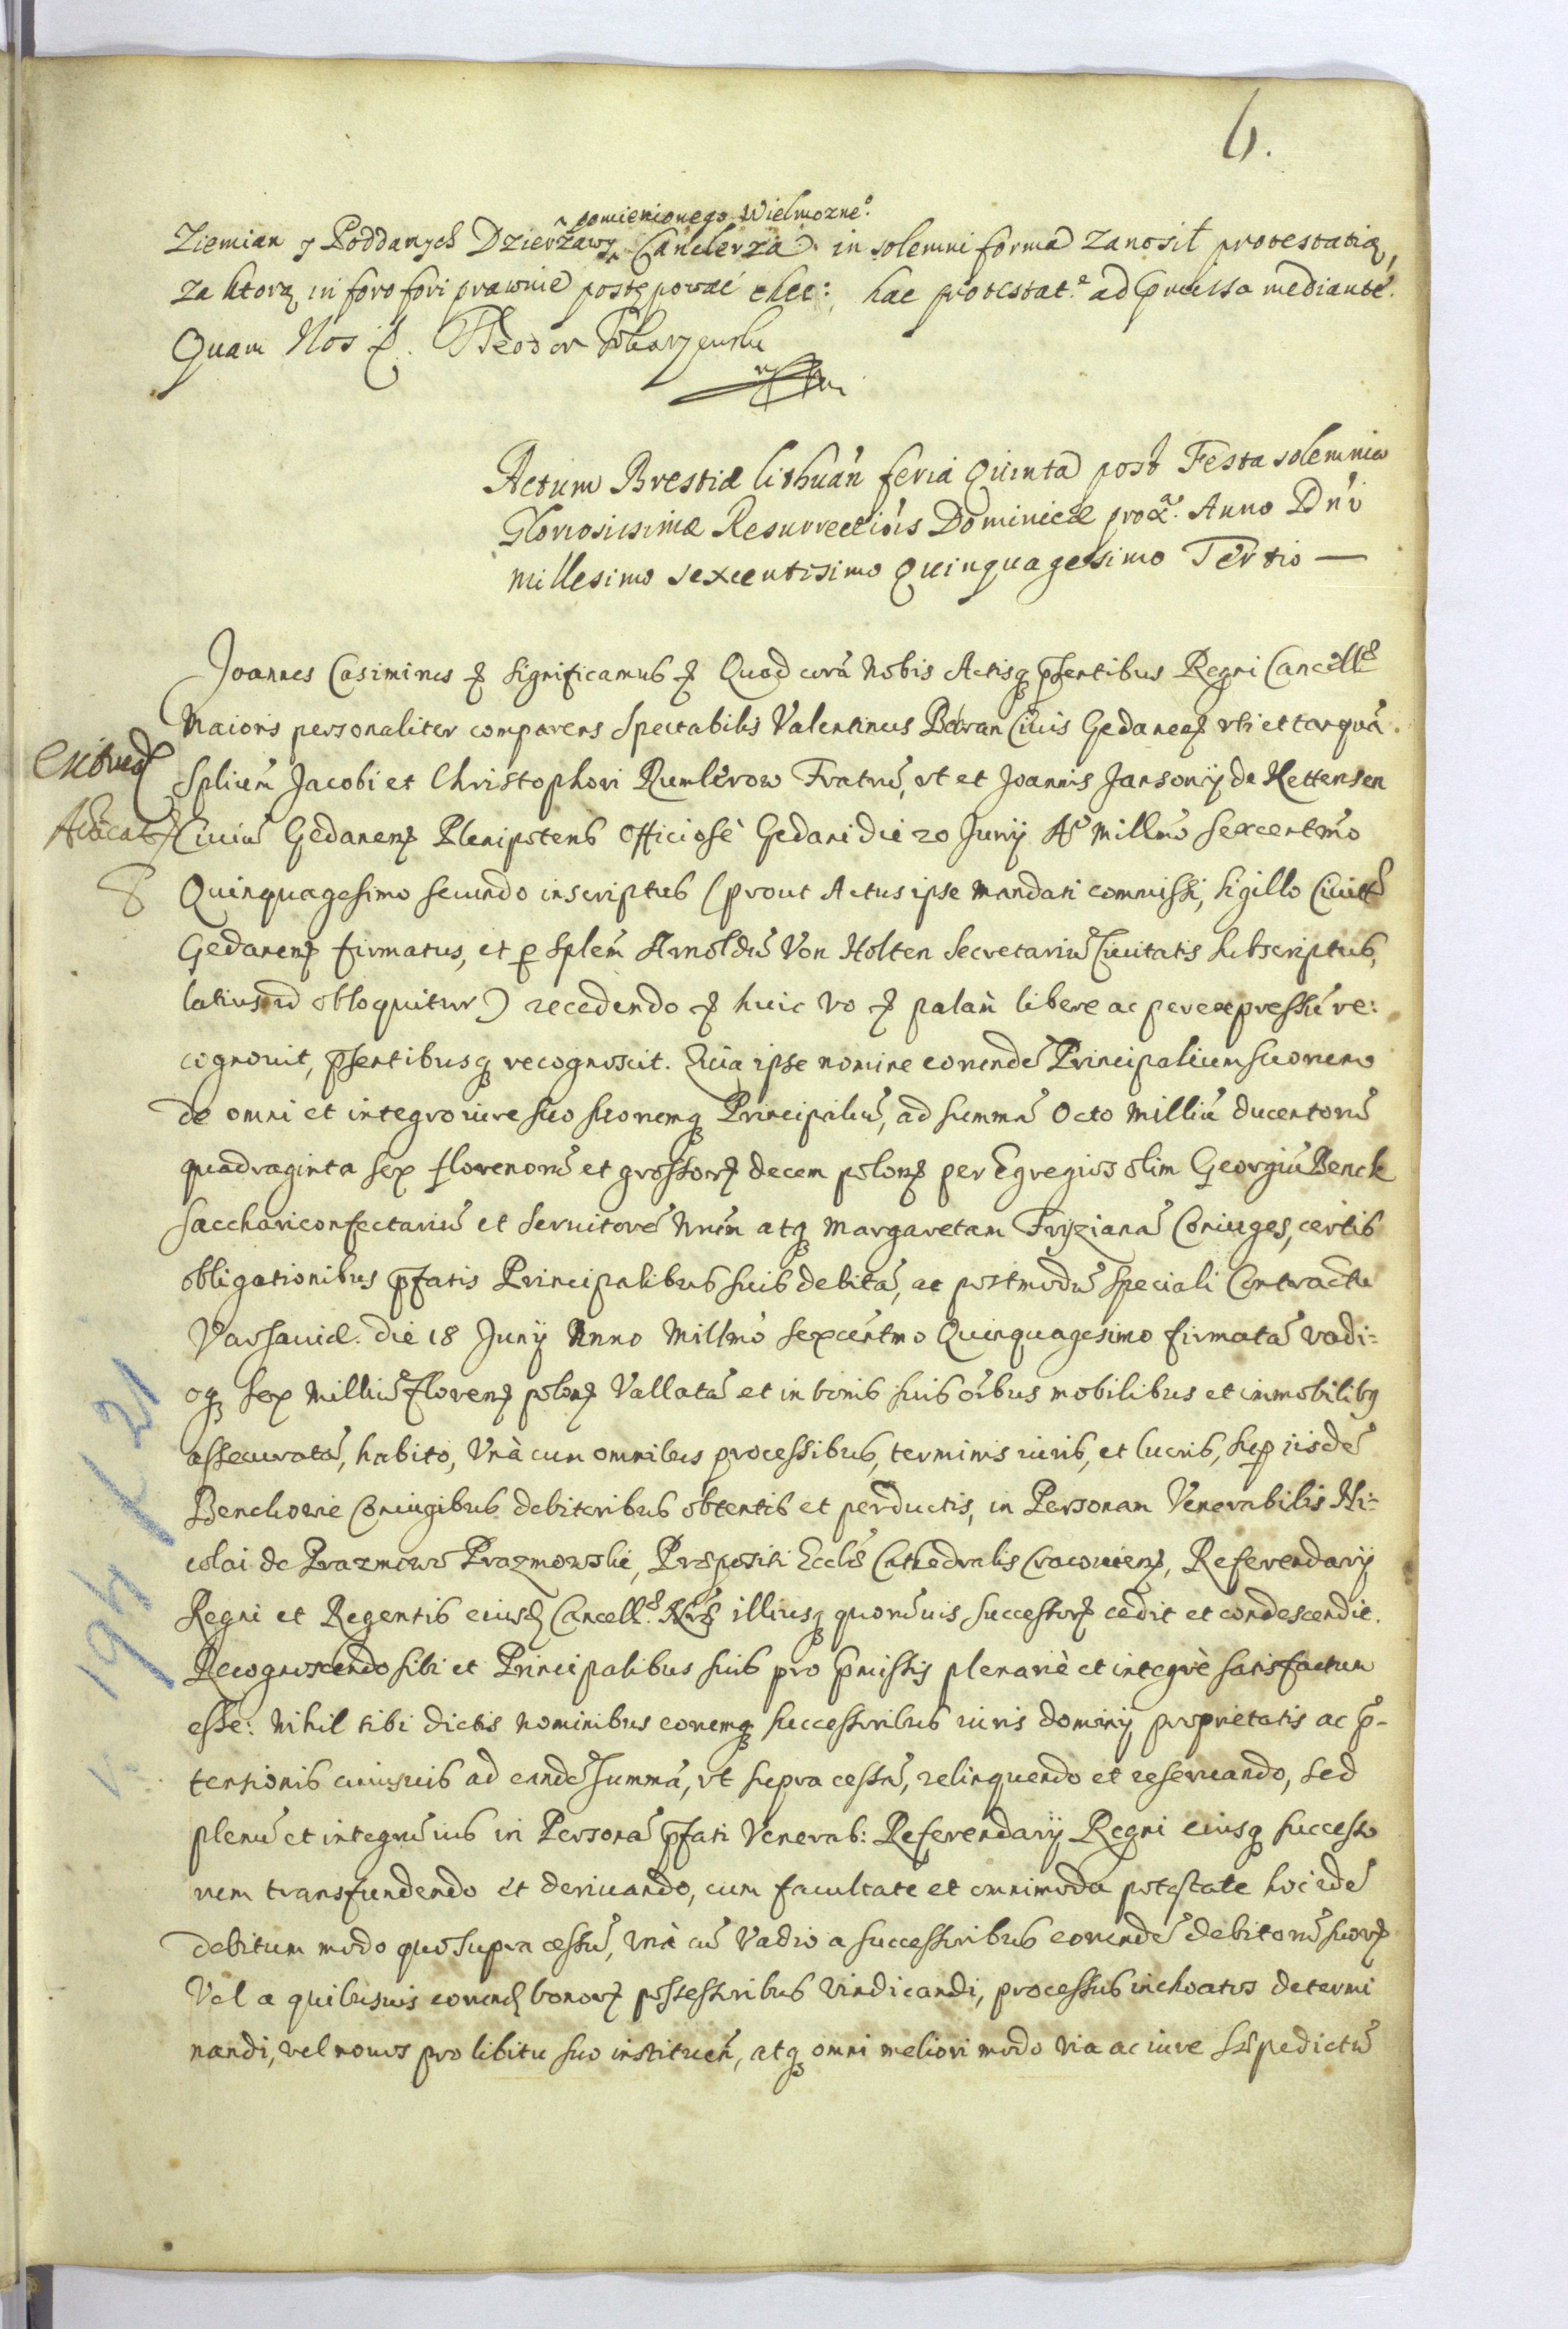 6.
pomienionego Wielmozne°
Ziemian y Poddanych Dzierżawy Canclerza in solemni forma zanosił protestatią,
za ktorą in foro fori prawnie postępowac chce: hac protestat.e ad p̃missa mediante.
Quam Nos &.
Actum Brestiæ lithuãn feria Quinta post Festa solemnia
Gloriosissimæ Resurrectiõis Dominicæ proxa. Anno Dñi
millesimo sexcentisimo Quinquagesimo Tertio —
Joannes Casimirus & significamus & Quod corã Nobis Actisq p̃sentibus Regni Cancellæ
Maioris personaliter comparens Spectabilis Valentinus Baran Civis Gedanen uti et tanquã
Splium Jacobi et Christophori Rumlerow Fratrũ, ut et Joannis Jansonij de Kettensen
Civiũ Gedanen Plenipotens Officiosè Gedani die 20 Junij Ao Millmo sexcentmo
Quinquagesimo secundo inscriptus (prout Actus ipse mandati commissi, sigillo Civittis
Gedanen firmatus, et p splem Arnoldũ Von Holten Secretariũ Civitatis subscriptus,
latius id obloquitur) recedendo & huic vo & palam libere ac per expressũ re:
cognovit, p̃sentibusq recognoscit. Quia ipse nomine eorundẽ Principalium suorum
de omni et integro iure suo suorumq Principaliũ, ad summã Octo Milliũ ducentorũ
quadraginta sex florenorũ et grossor decem polon per Egregios olim Georgiũ Benck
Sacchariconfectariũ et servitorẽ Nrum atq Margaretam Fryzianã Coniuges, certis
obligationibus p̃fatis Principalibus suis debitã, ac postmodũ speciali Contractu
Varsaviæ die 18 Junij Anno Millmo sexcentmo Quinquagesimo firmatã vadi=
oq sex milliũ floren polon Vallatã et in bonis suis oibus mobilibus et immobilibq
assecuratã, habito, Unà cum omnibus processibus, terminis iuris, et lucris, sup iisdẽ
Benckowie Coniugibus debitoribus obtentis et perductis, in Personam Venerabilis Ni=
colai de Prazmowo Prazmowski, Præpositi Ecclæ Cathedralis Cracovien, Referendarij
Regni et Regentis eiusd Cancellæ Nræ illiusq quorũvis successor cedit et condescendit.
Recognoscendo sibi et Principalibus suis pro p̃missis plenariè et integrè satisfactum
esse: Nihil sibi dictis nominibus eorumq successoribus iuris dominij proprietatis ac p̃-
tensionis cuiusvis ad eandẽ summã, ut supra cessã, relinquendo et reservando, sed
plenũ et integrũ ius in Personã p̃fati Venerab: Referendarij Regni eiusq successo
rum transfundendo et derivando, cum facultate et omnimoda potestate hoc idẽ
debitum modo quo supra cessũ, Unà cũ Vadio a successoribus eorundẽ debitorũ suor
Vel a quibusvis eorund bonor possessoribus Vindicandi, processus inchoatos determi
nandi, vel novos pro libitu suo instituen, atq omni meliori modo via ac iure sæpedictũ
k 21